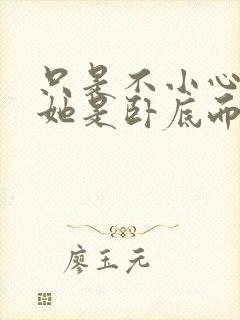 只是不小心
她是卧底而
廖玉元